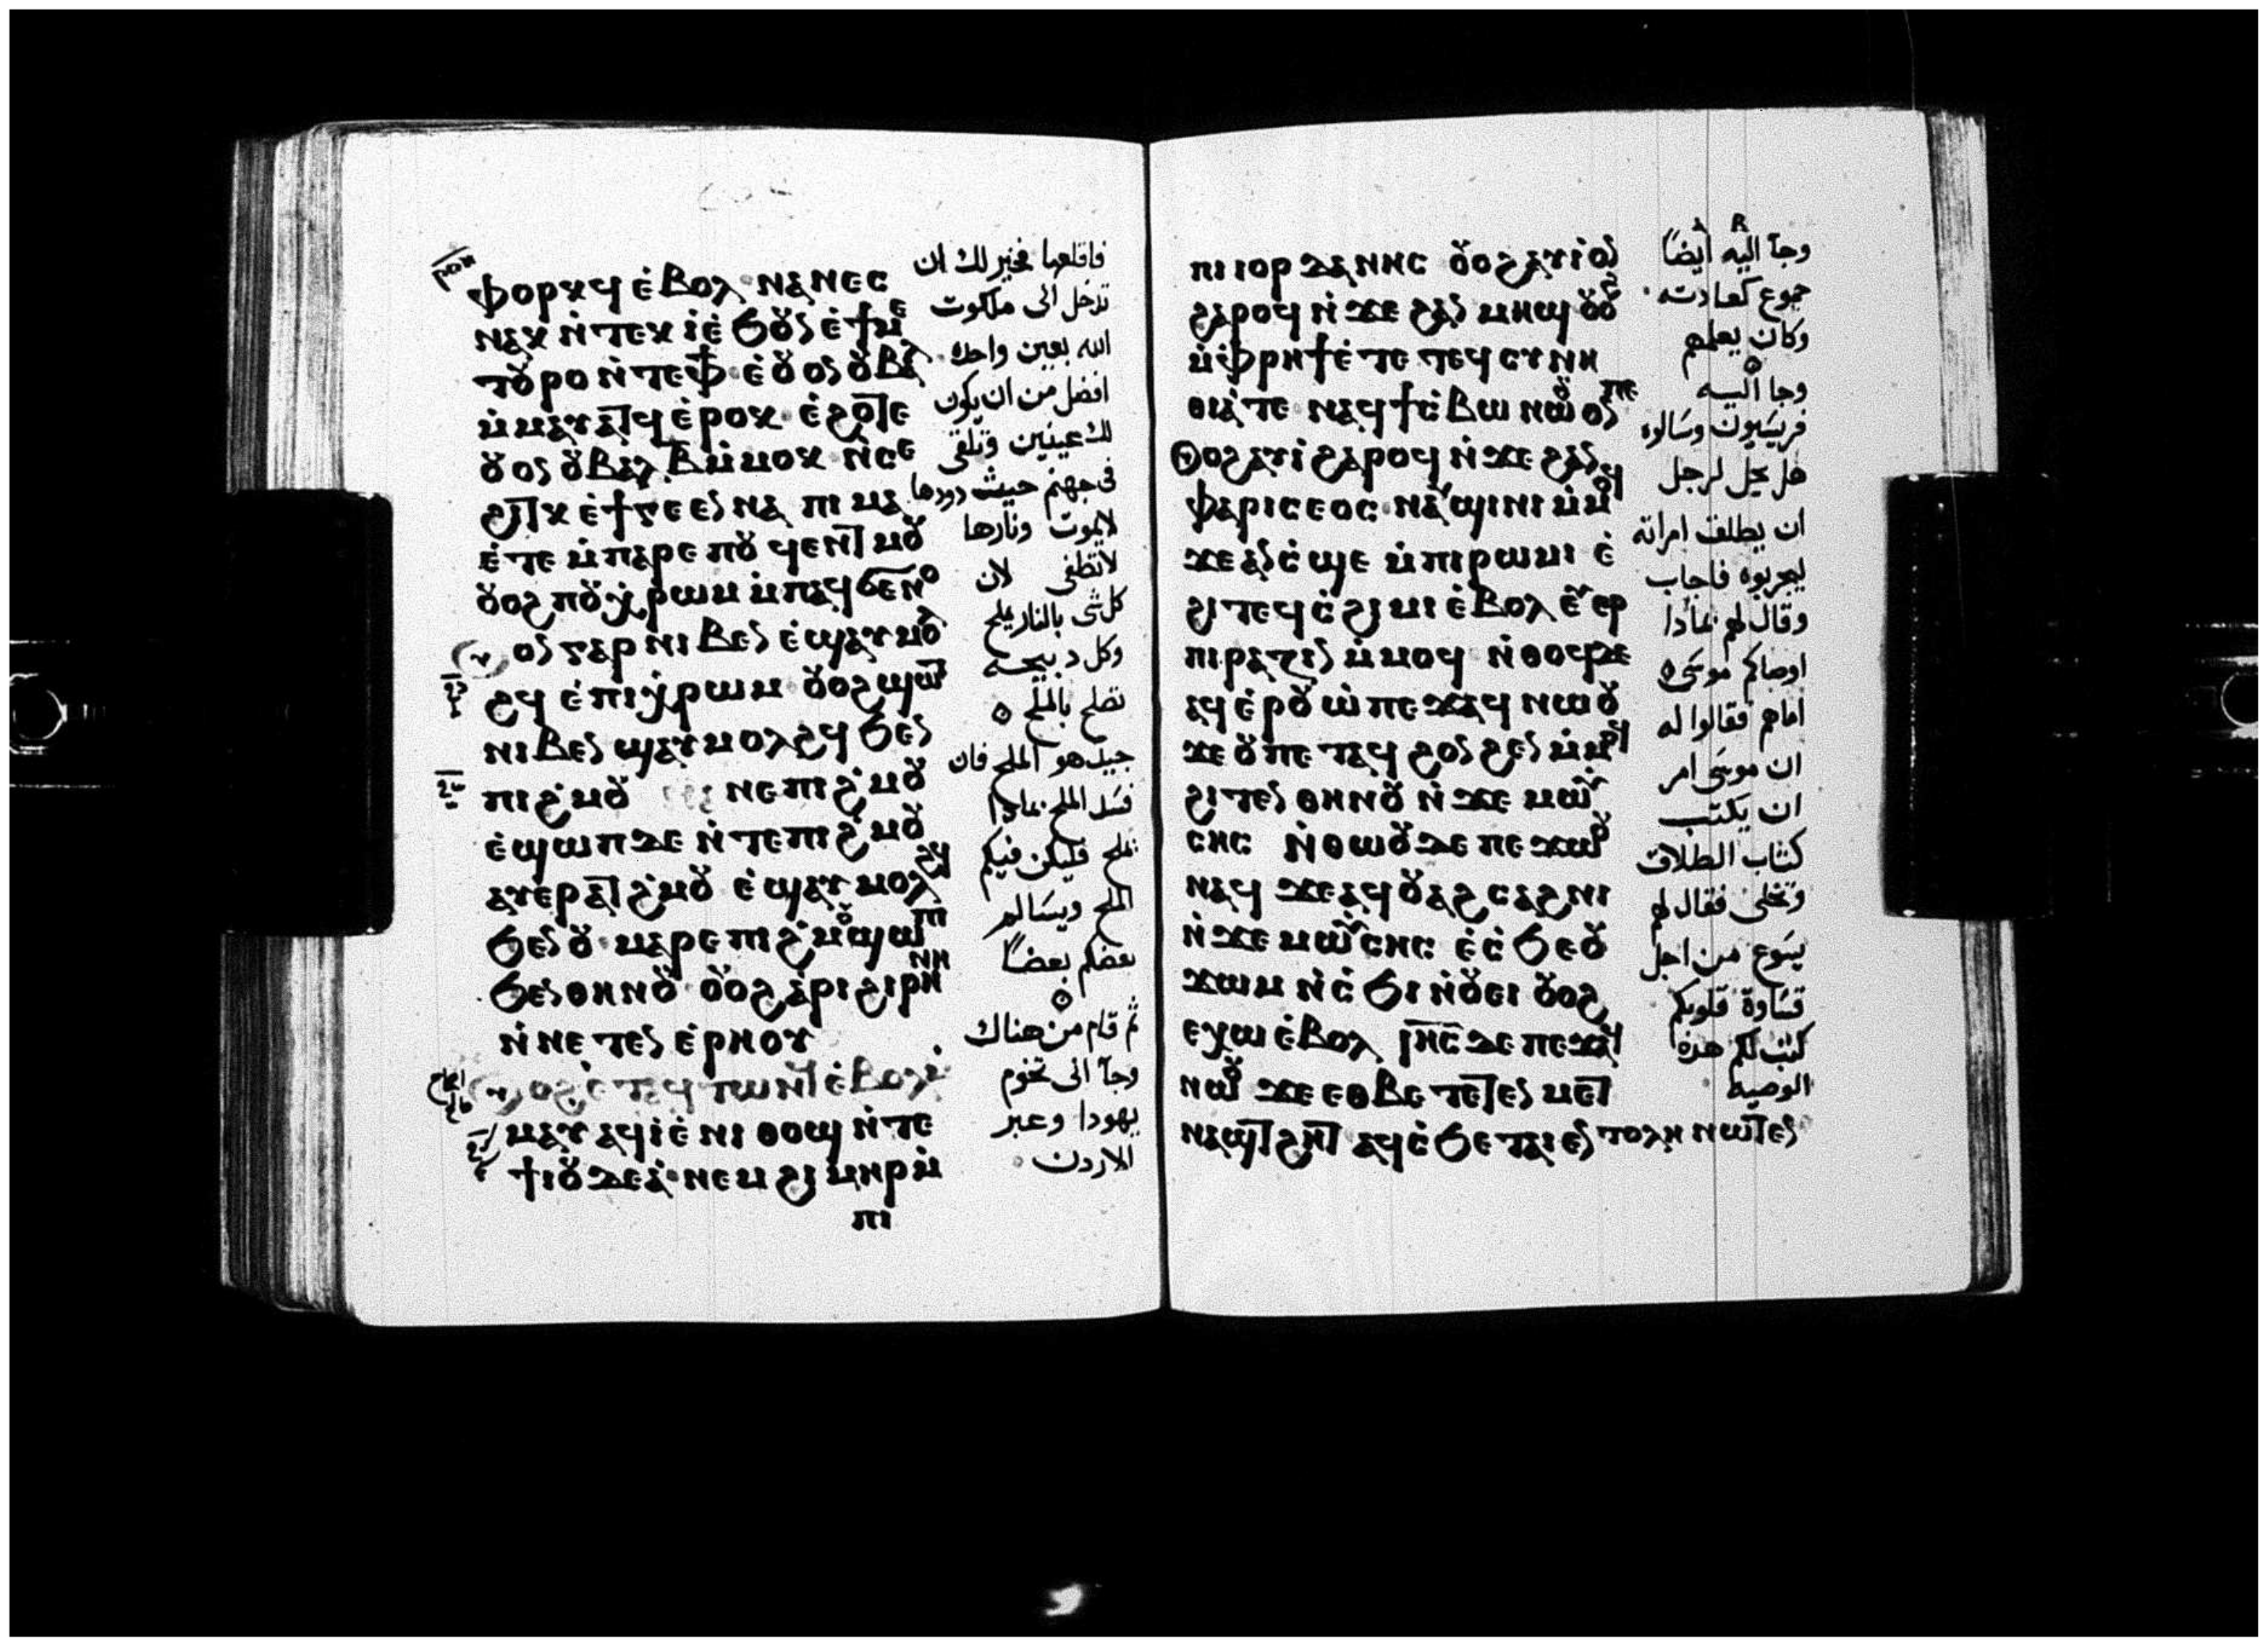 ⲫⲟⲣⲕϥ ⲉ̀ⲃⲟⲗ ⲛⲁⲛⲉⲥ
ⲛⲁⲕ ⲛ̀ⲧⲉⲕⲓ̀ ⲉ̀ϧⲟⲩⲛ ⲉ̀ϯⲙⲉ
ⲧⲟⲩⲣⲟ ⲛ̀ⲧⲉⲫϯ ⲉ̀ⲟⲩⲟⲛ ⲟⲩⲃⲁⲗ
ⲙ̀ⲙⲁⲩⲁⲧϥ ⲉ̀ⲣⲟⲕ ⲉ̀ϩⲟⲧⲉ
ⲟⲩⲟⲛ ⲟⲩⲃⲁⲗ ⲃ̅ ⲙ̀ⲙⲟⲕ ⲛ̀ⲥⲉ
ϩⲓⲧⲕ ⲉ̀ϯⲅⲉⲉⲛⲛⲁ ⲡⲓⲙⲁ
ⲉ̀ⲧⲉ ⲙ̀ⲡⲁⲣⲉ ⲡⲟⲩϥⲉⲛⲧ ⲙⲟⲩ
ⲟⲩⲟϩ ⲡⲟⲩⲭ̀ⲣⲱⲙ ⲙ̀ⲡⲁϥϭⲉⲛⲟ
ⲟⲛ ⲅⲁⲣ ⲛⲓⲃⲉⲛ ⲉ̀ϣⲁⲩⲙⲟⲗ
ϩϥ ⲉ̀ⲡⲓⲭ̀ⲣⲱⲙ ⲟⲩⲟϩ ϣⲱⲧ
ⲛⲓⲃⲉⲛ ϣⲁⲩⲙⲟⲗϩϥ ϧⲉⲛ
ⲡⲓϩ̀ⲙⲟⲩ ⲛⲉ ⲡⲓϩ̀ⲙⲟⲩ
ⲉ̀ϣⲱⲡ ⲇⲉ ⲛ̀ⲧⲉ ⲡⲓϩ̀ⲙⲟⲩ
ⲁⲩⲉⲣⲁⲧϩ̀ⲙⲟⲩ ⲉ̀ϣⲁⲩⲙⲟⲗϩϥ
ϧⲉⲛ ⲟⲩ ⲙⲁⲣⲉ ⲡⲓϩ̀ⲙⲟⲩ ϣⲱⲡⲓ
ϧⲉⲛ ⲑⲏⲛⲟⲩ ⲟⲩⲟϩ ⲁ̀ⲣⲓϩⲓⲣⲏⲛⲏ
ⲛ̀ⲛⲉⲧⲉⲛⲉ̀ⲣⲏⲟⲩ
ⲟϩ ⲉ̀ⲧⲁϥⲧⲱⲛϥ ⲉ̀ⲃⲟⲗ ⲙ̀
ⲙⲁⲩ ⲁϥⲓ̀ ⲉ̀ⲛⲓⲑⲟϣ ⲛ̀ⲧⲉ
ϯⲓⲟⲩⲇⲉⲁ̀ ⲛⲉⲙ ϩⲓⲙⲏⲣ ⲙ̀
ⲡⲓ
فاقلعها فخير لك ان
تدخل الى ملكوت
الله بعين واحده
افضل من ان يكون
لك عينين وتلقى
فى جهنم حيث دودها
لايموت ونارها
لاتطفى لان
كل شى بالنار يملح
وكل دبيحه
تملح بالملح
جيد هو الملح فان
فسد الملح بمادا
يملح فليكن فيكم
الملح ويسالم
بعضكم بعضًا
ثم قام من هناك
وجآ الى تخوم
يهودا وعبر
الاردن
ⲡⲓⲓⲟⲣⲇⲁⲛⲛⲏⲥ ⲟⲩⲟϩ ⲁⲩⲓ̀ ⲟⲛ
ϩⲁⲣⲟϥ ⲛ̀ϫⲉ ϩⲁⲛⲙⲏϣ ⲟⲩⲟϩ
ⲙ̀ⲫⲣⲏϯ ⲉ̀ⲧⲉ ⲧⲉϥⲥⲩⲛⲏ
ⲑⲓⲁ̀ ⲧⲉ ⲛⲁϥϯⲥ̀ⲃⲱ ⲛⲱⲟⲩ ⲟⲛ ⲡⲉ
ⲟⲩⲟϩ ⲁⲩⲓ̀ ϩⲁⲣⲟϥ ⲛ̀ϫⲉ ϩⲁⲛ
ⲫⲁⲣⲓⲥⲉⲟⲥ ⲛⲁⲩϣⲓⲛⲓ ⲙ̀ⲙⲟϥ
ϫⲉ ⲁⲛ ⲥ̀ϣⲉ ⲙ̀ⲡⲓⲣⲱⲙⲓ ⲉ̀
ϩⲓ ⲧⲉϥⲥ̀ϩⲓⲙⲓ ⲉ̀ⲃⲟⲗ ⲉⲩⲉⲣ
ⲡⲓⲣⲁⲍⲓⲛ ⲙ̀ⲙⲟϥ ⲛ̀ⲑⲟϥ ⲇⲉ
ⲁϥⲉ̀ⲣⲟⲩⲱ̀ ⲡⲉϫⲁϥ ⲛⲱⲟⲩ
ϫⲉ ⲟⲩ ⲡⲉⲧⲁϥϩⲟⲛϩⲉⲛ ⲙ̀ⲙⲟϥ
ϩⲓⲧⲉⲛ ⲑⲏⲛⲟⲩ ⲛ̀ϫⲉ ⲙⲱⲩ
ⲥⲏⲥ ⲛ̀ⲑⲱⲟⲩ ⲇⲉ ⲡⲉϫⲱⲟⲩ
ⲛⲁϥ ϫⲉ ⲁϥⲟⲩⲁϩⲥⲁϩⲛⲓ
ⲛ̀ϫⲉ ⲙⲱⲩⲥⲏⲥ ⲉ̀ⲥ̀ϧⲉ ⲟⲩ
ϫⲱⲙ ⲛ̀ⲥ̀ϭⲓⲛⲟⲩⲉⲓ ⲟⲩⲟϩ
ⲉⲭⲱ ⲉ̀ⲃⲟⲗ ⲓⲏ̅ⲥ̅ ⲇⲉ ⲡⲉϫⲁϥ
ⲛⲱⲟⲩ ϫⲉ ⲉⲑⲃⲉ ⲧⲉⲧⲉⲛⲙⲉⲧ
ⲛⲁϣⲧϩⲏⲧ ⲁϥⲥ̀ϧⲉ ⲧⲁⲓⲉⲛⲧⲟⲗⲏ ⲛⲱⲧⲉⲛ
وجآ اليه ايضًا
جموع كعادته
وكان يعلمهم
وجا اليه
فريسيون وسالوه
هل يحل لرجل
ان يطلق امراته
ليجربوه فاجاب
وقال لهم بمادا
اوصاكم موسى
اماهم فقالوا له
ان موسى امر
ان يكتب
كتاب الطلاق
وتخلى فقال لهم
يسوع من اجل
قساوة قلوبكم
كتب لكم هذه
الوصيه